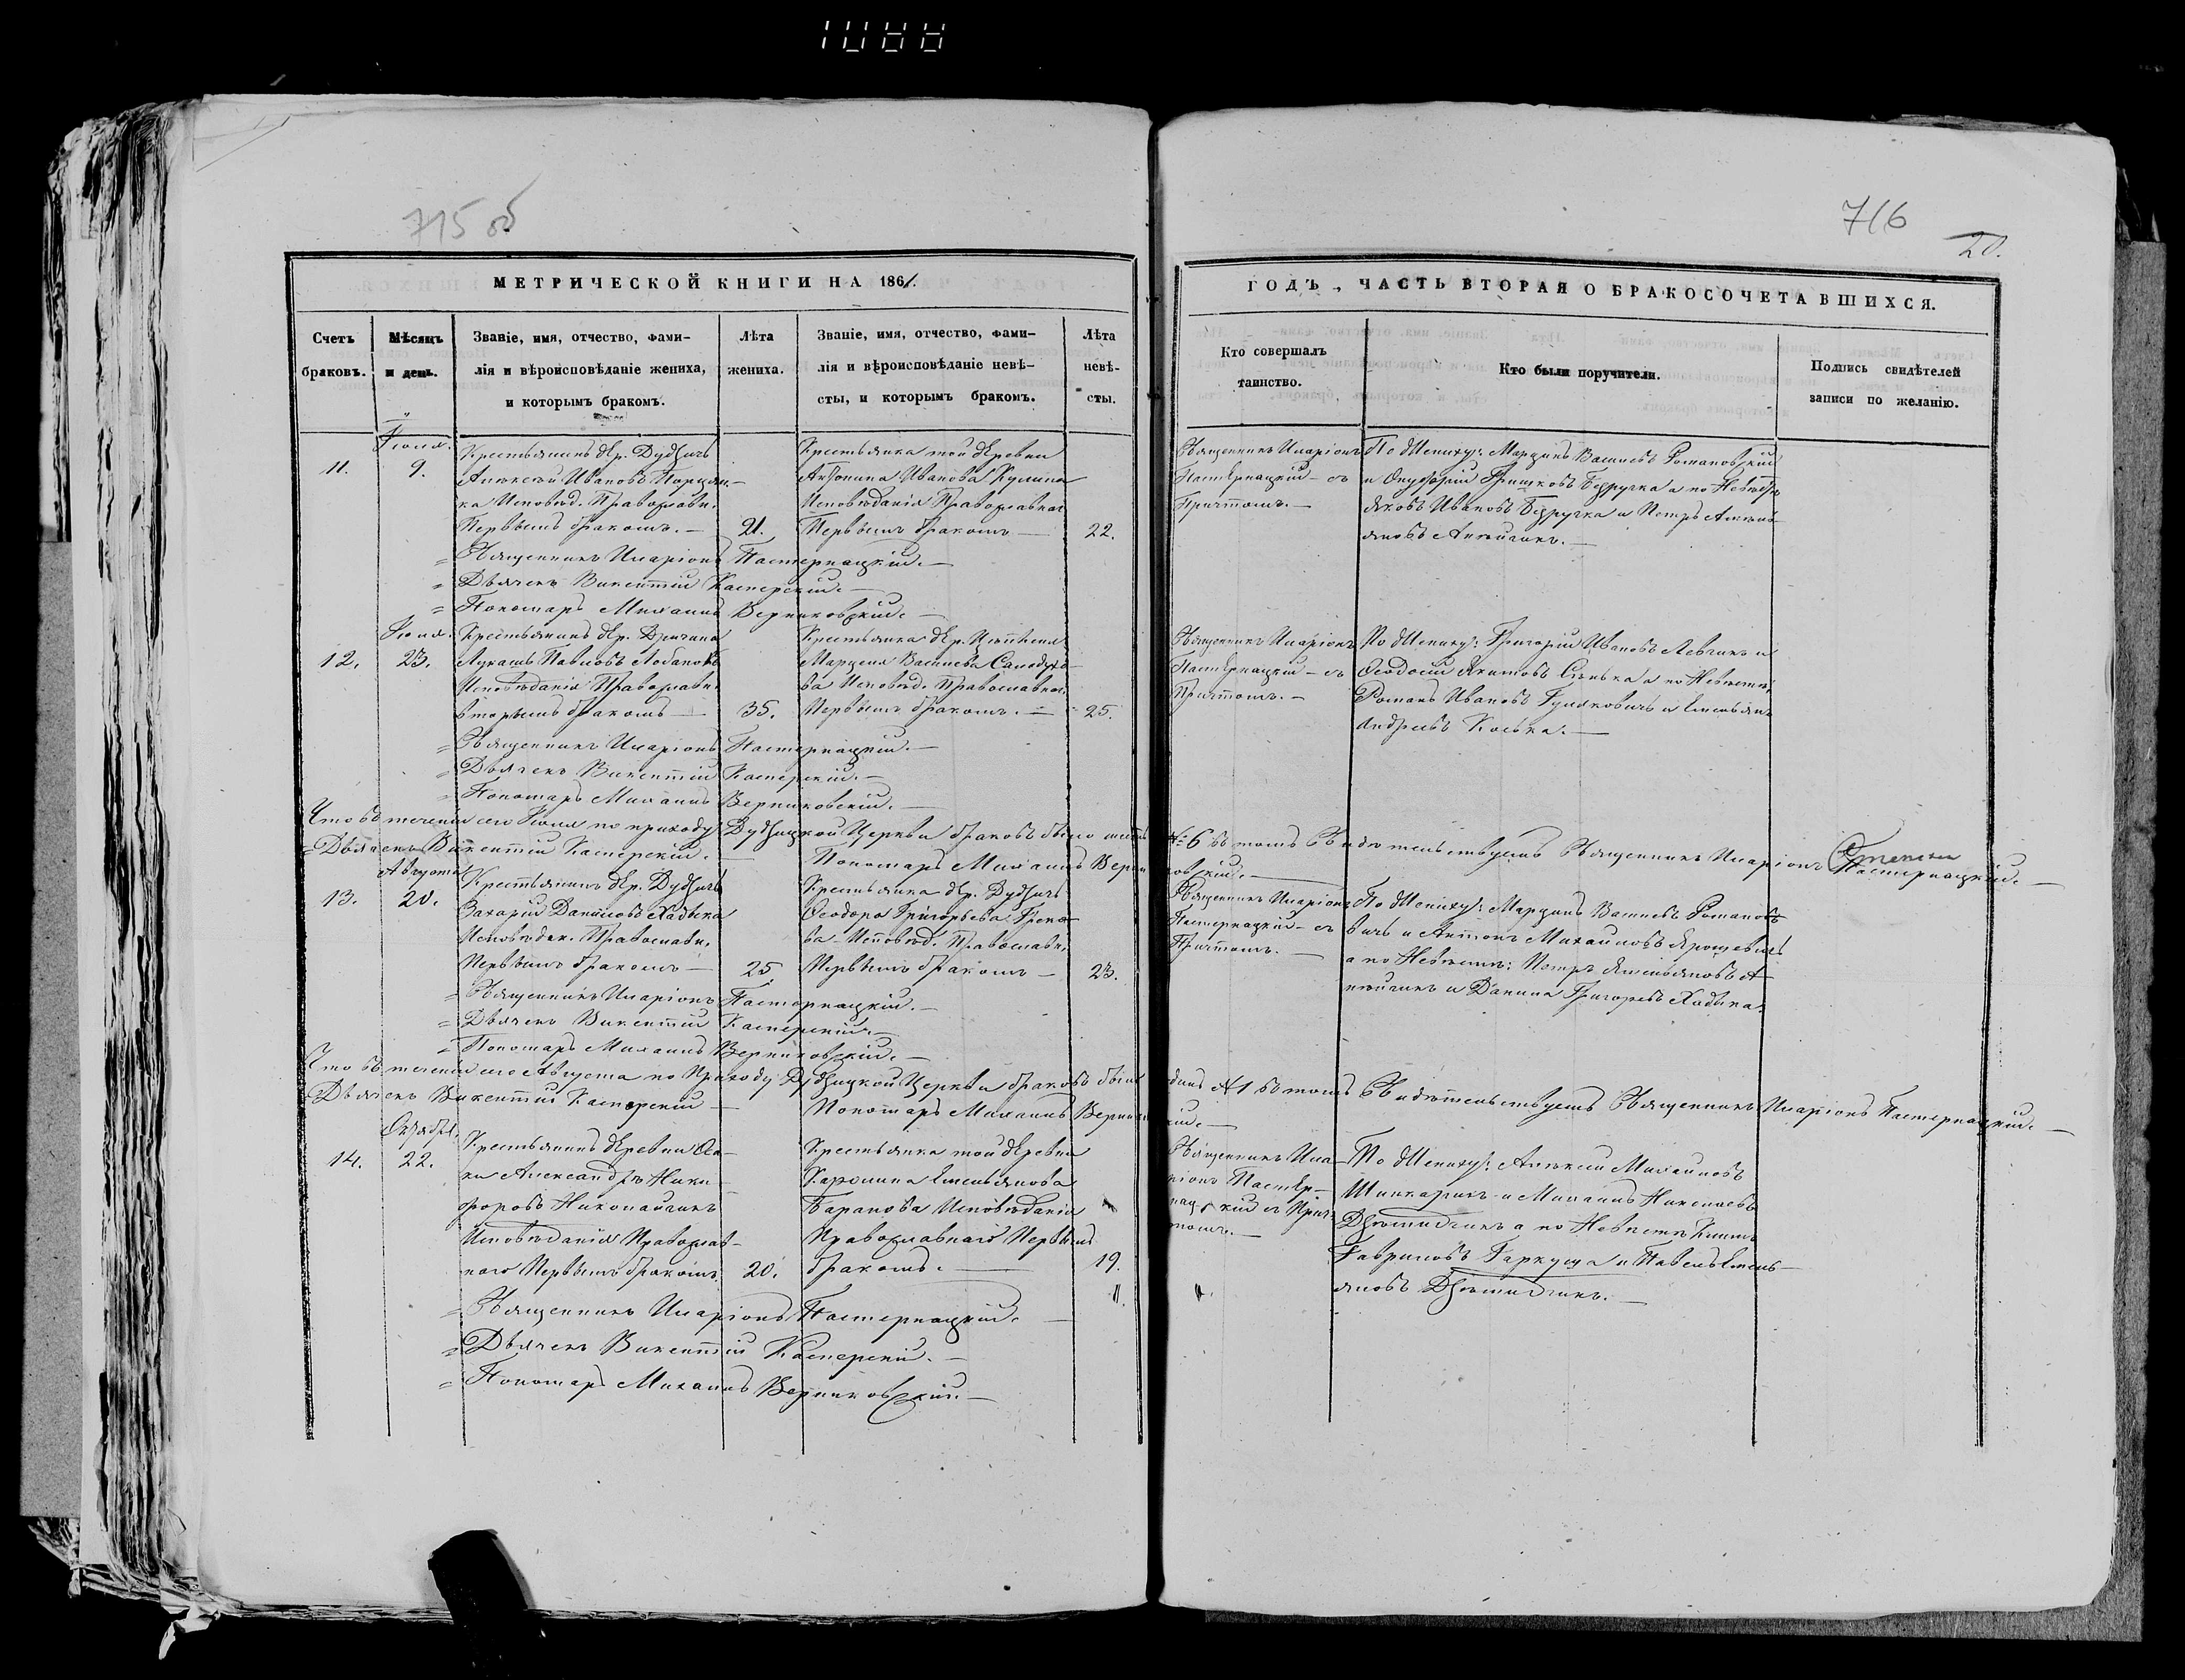 715 об
716
20.
МЕТРИЧЕСКОЙ КНИГИ НА 1861.
ГОДЪ, ЧАСТЬ ВТОРАЯ О БРАКОСОЧЕТАВШИХСЯ.
Счетъ браковъ.
Мѣсяцъ и день.
Званіе, имя, отчество, фами-
лія и вѣроисповѣданіе жениха,
и которымъ бракомъ.
Лѣта жениха.
Званіе, имя, отчество, фами-
лія и вѣроисповѣданіе невѣ-
сты, и которымъ бракомъ.
Лѣта невѣ-
сты.
Кто совершалъ
таинство.
Кто были поручители.
Подпись свидѣтелей
записи по желанію.
11.
Іюля.
9.
Крестьянинъ дер. Дудзичъ
Алексѣй Ивановъ
ка Исповѣд. Православн.
Первымъ бракомъ. —
21.
Крестьянка той деревни
Антонина Иванова
Исповѣданія Православнаго
Первымъ бракомъ —
22.
Священникъ Иларіонъ
Пастернацкій — съ
Причтомъ. —
По Жениху: Марцинъ Васильевъ Романовскій
и Онуфрій Гришковъ Безручка а по Невѣстѣ
Яковъ Ивановъ Безручка и Петръ
яновъ
= Священникъ Иларіонъ Пастернацкій. —
= Дьячекъ Викентій Касперскій. —
= Пономарь Михаилъ Верниковскій. —
12.
Іюля.
23.
Крестьянинъ дер.
Лукашъ Павловъ Лобановъ
Исповѣданія Православн.
вторымъ бракомъ —
35.
Крестьянка дер.
Марцеля Васильева
ва Исповѣд. Православнаго
Первымъ бракомъ. —
25.
Священникъ Иларіонъ
Пастернацкій — съ
Причтомъ. —
По Жениху: Григорій Ивановъ Левчикъ и
Ѳеодосій Якимовъ а по Невѣстѣ
Романъ Ивановъ и Емельянъ
Андреевъ Коська. —
= Священникъ Иларіонъ Пастернацкій. —
= Дьячекъ Викентій Касперскій. —
Пономарь Михаилъ Верниковскій. —
Что въ теченіи сего Іюля по приходу Дудзицкой Церкви браковъ было шесть № 6 въ томъ Свидѣтельствуетъ Священникъ Иларіонъ Пастернацкій. —
= Дьячекъ Викентій Касперскій. — Пономарь Михаилъ Верниковскій. —
13.
Августа
20.
Крестьянинъ дер. Дудзичъ
Захарій Даниловъ Хадыка
Исповѣдан. Православн.
Первымъ бракомъ —
25
Крестьянка дер. Дудзичъ
Ѳеодора Григорьева
ва Исповѣд. Православн.
Первымъ бракомъ —
23.
Священникъ Иларіонъ
Пастернацкій — съ
Причтомъ. —
По Жениху: Марцинъ Васильевъ Романов-
ичъ и Антонъ Михайловъ Ярошевичъ
а по Невѣстѣ: Петръ Емельяновъ
и Данила Григорьевъ Хадыка.
= Священникъ Иларіонъ Пастернацкій. —
= Дьячекъ Викентій Касперскій. —
= Пономарь Михаилъ Верниковскій. —
Что въ теченіи сего Августа по Приходу Дудзицкой Церкви браковъ былъ одинъ № 1 въ томъ Свидѣтельствуетъ Священникъ Иларіонъ Пастернацкій. —
Дьячекъ Викентій Касперскій — Пономарь Михаилъ
14.
Октября.
22.
Крестьянинъ деревни
Александръ Ники-
форовъ Николайчикъ
Исповѣданія Православ-
наго Первымъ бракомъ.
20.
Крестьянка той деревни
Каролина Емельянова
Баранова Исповѣданія
Православнаго Первымъ
бракомъ. —
19.
Священникъ Ила-
ріонъ Пастер-
нацкій съ Прич-
томъ. —
По Жениху: Алексѣй Михайловъ
Шинкарикъ и Михаилъ Николаевъ
а по Невѣстѣ
Гавриловъ Гаркуша и Павелъ Емель-
яновъ
= Священникъ Иларіонъ Пастернацкій. —
= Дьячекъ Викентій Касперскій. —
= Пономарь Михаилъ Верниковскій. —